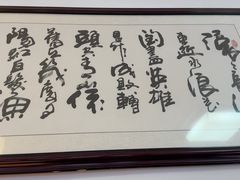 東逝水浪花
淘盡英雄
是非成敗轉
頭空青山依
舊在幾度夕
陽紅白髮漁